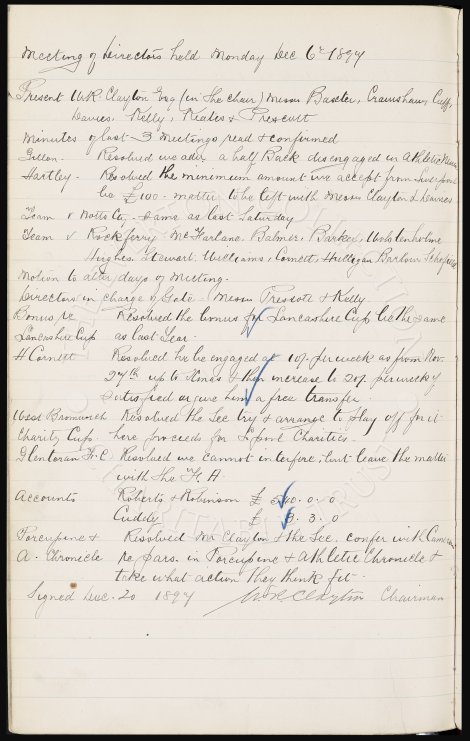 Meeting of Directors held Monday Dec 6th 1897
Present W.R. Clayton Esq (in the chair) Messrs Baxter, Crawshaw, Cuff,
Davies, Kelly, Keates & Prescott
Minutes of last 3 Meetings read & confirmed
Resolved we adv. a half Back disengaged in Athletic News
Hartley - Resolved the minimum amount we accept from Liverpool
be £100 - matter to be left with Messrs Clayton & Davies
Team v Notts Co. - Same as last Saturday
Team v Rock ferry McFarlane, Balmer, Barker, Wolstenholme
Hughes, Stewart, Williams, Cornett, Hulligan Barlow Schofield
Motion to alter days of Meeting.
Directors in charge of Gate - Messrs Prescott & Kelly.
Bonus re Resolved the bonus for Lancashire Cup be the same
Lancashire Cup as last Year.
H Cornett Resolved he be engaged at 10/- per week as from Nov.
27th up to Xmas & then increase to 20/- per week if
satisfied or give him a free transfer.
West Bromwich Resolved the Sec try & arrange to play off for it
Charity Cup. here proceeds for L'pool Charities.
Glentoran F.C. Resolved we cannot interfere, but leave the matter
with the F.A.
Accounts Roberts & Robinson £ 50. 0. 0
Cuddy £ 3. 3. 0
Porcupine & Resolved Mr Clayton & the Sec. confer with Cameron
A. Chronicle re pars. in Porcupine & Athletic Chronicle &
take what action they think fit.
Signed Dec. 20 1897 W R Clayton Chairman